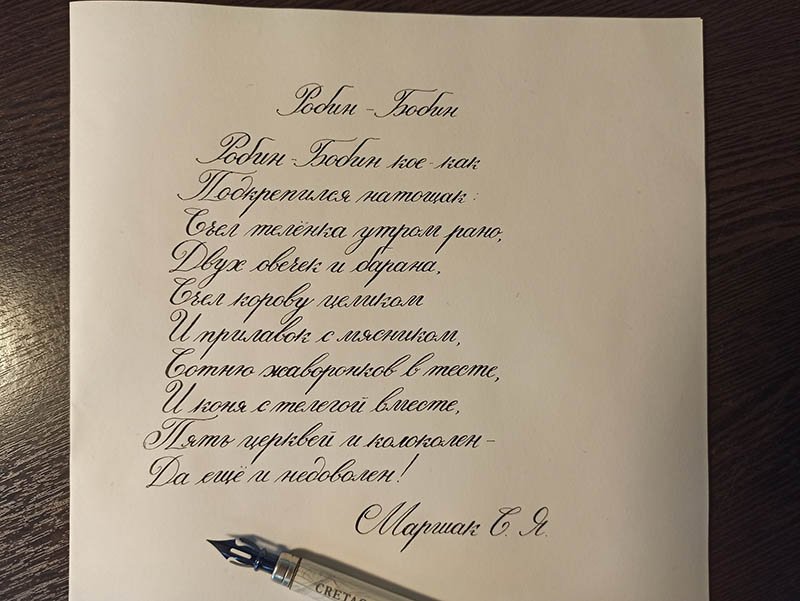 Робин-Бобин
Робин-Бобин кое-как
Подкрепился натощак:
Съел телёнка утром рано,
Двух овечек и барана,
Съел корову целиком
И прилавок с мясником,
Сотню жаворонков в тесте,
И коня с телегой вместе,
Пять церквей и колоколен-
Да ещё и недоволен!
Маршак С. Я.